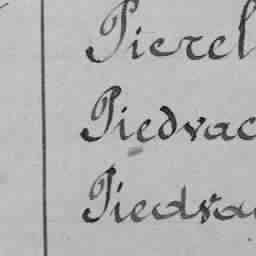 Pierel
Piedvac
Piedva